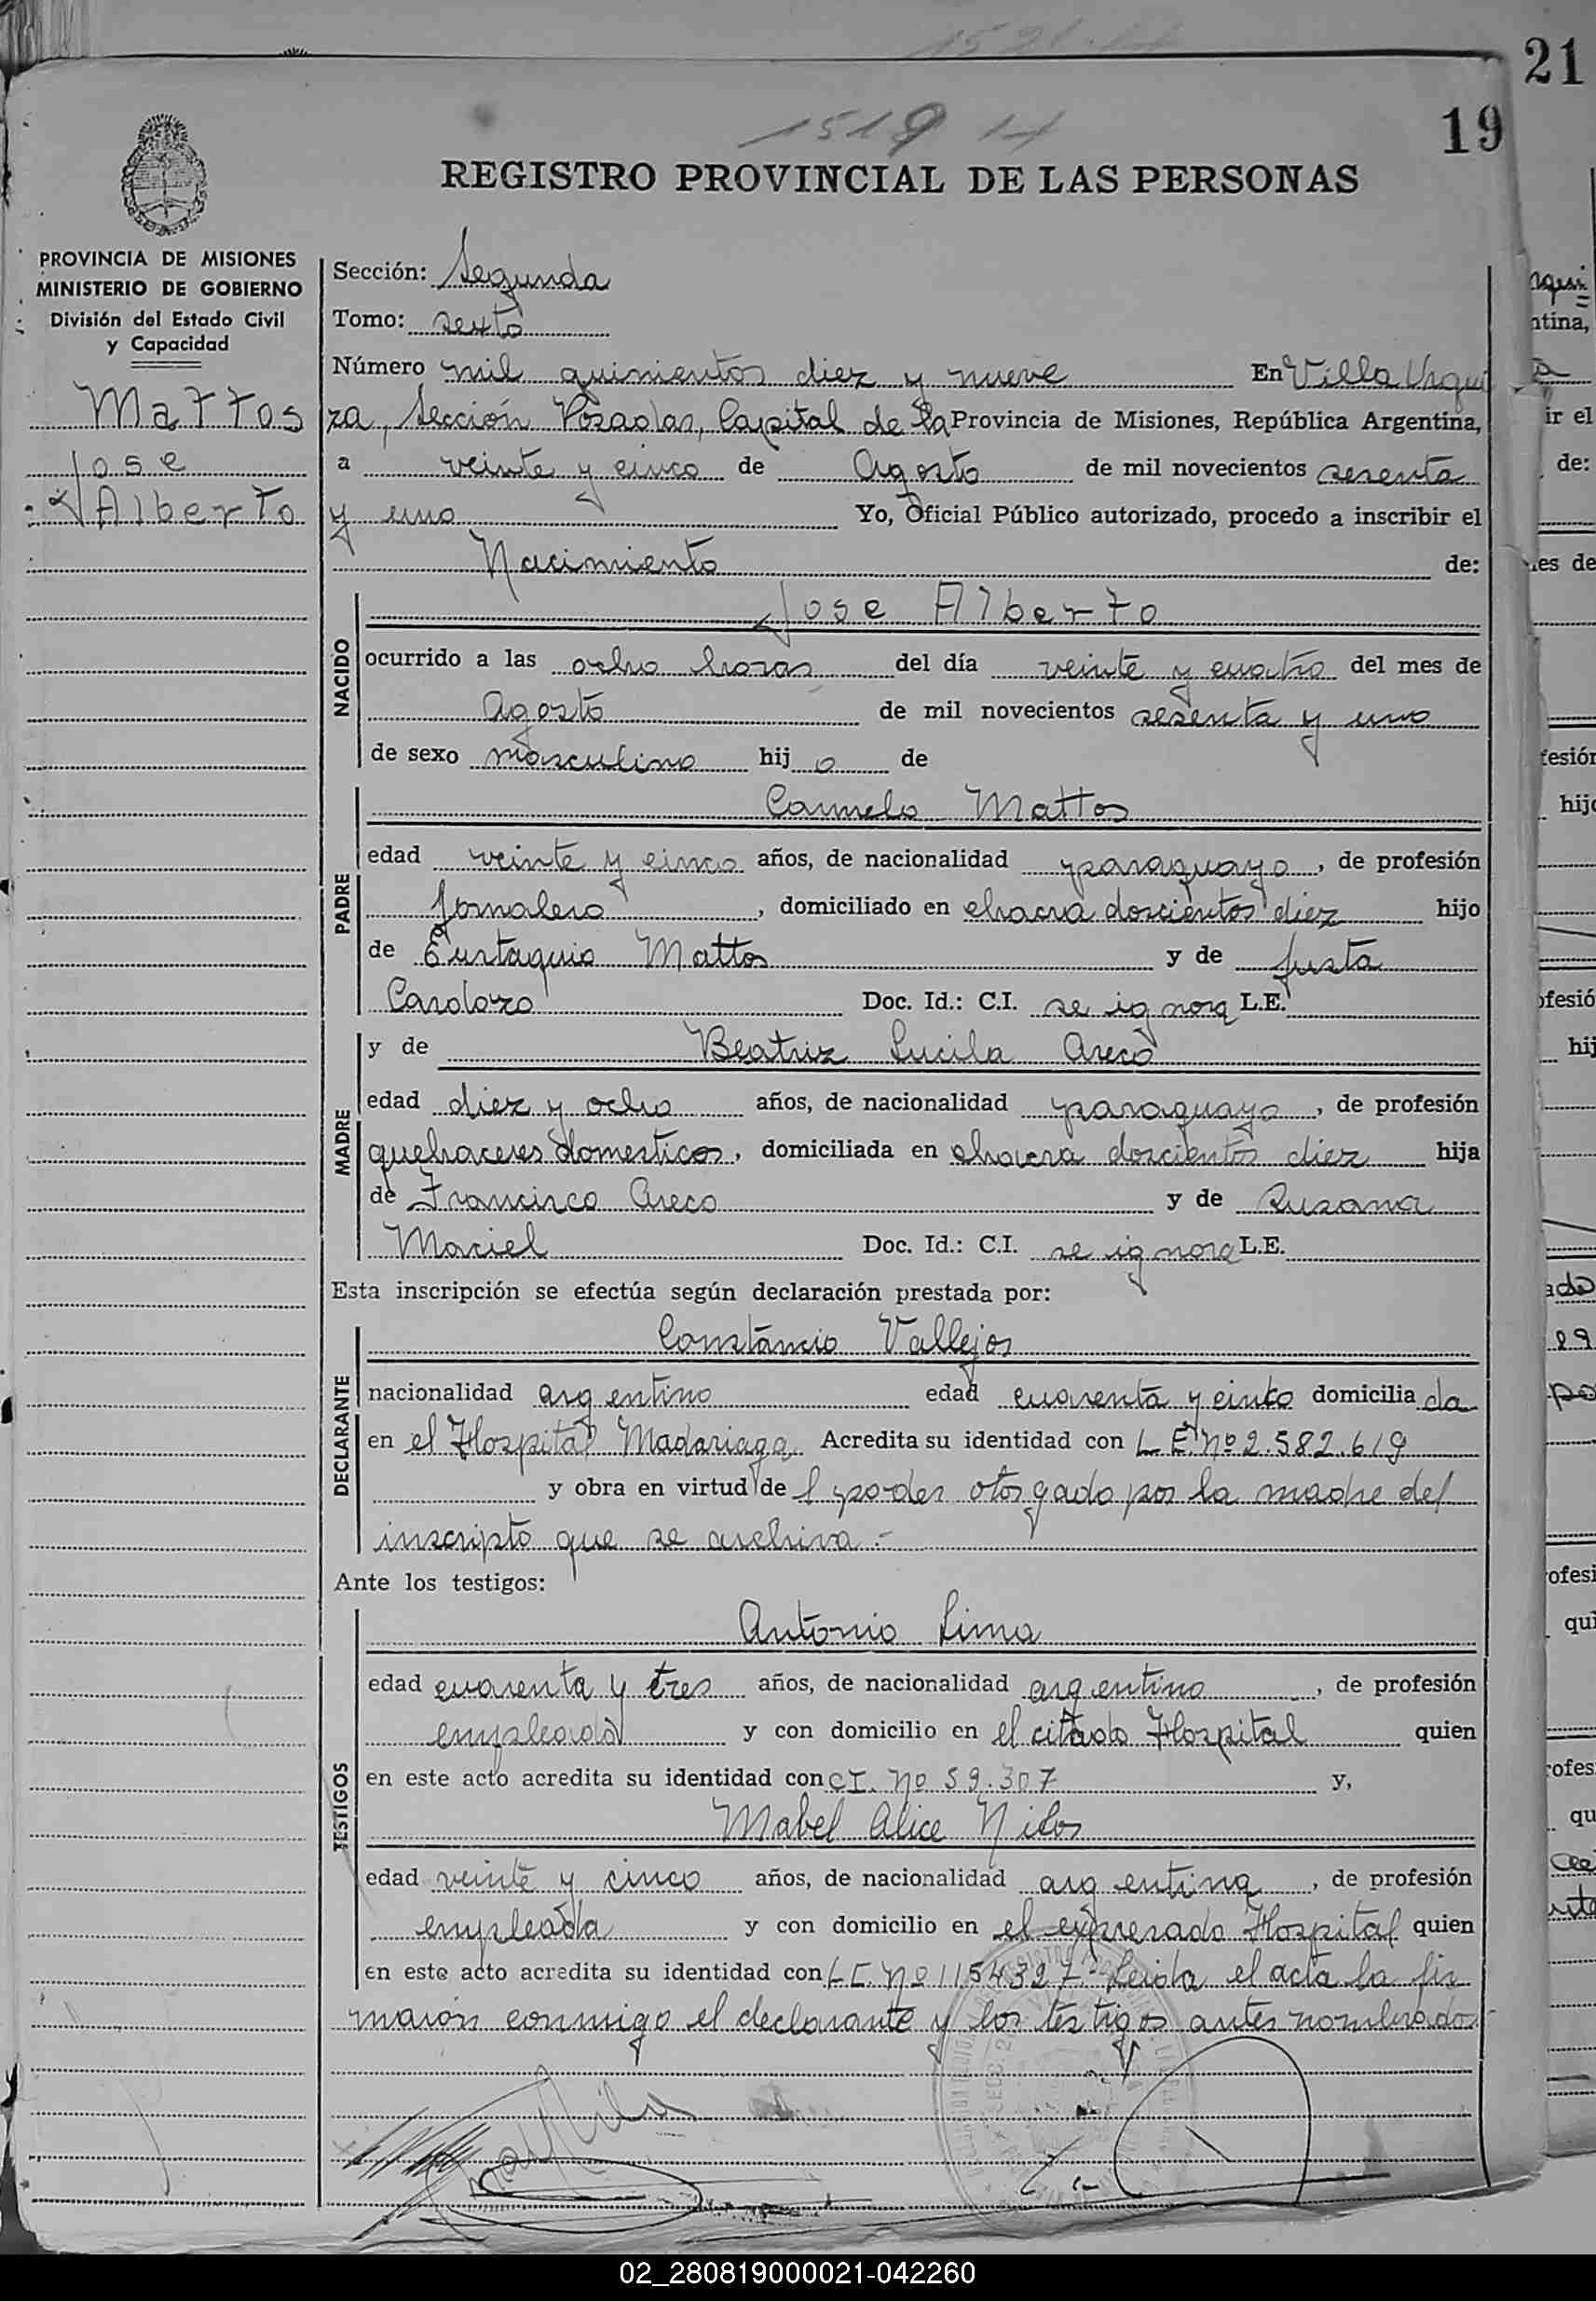 21
1519 14
19
REGISTRO PROVINCIAL DE LAS PERSONAS
PROVINCIA DE MISIONES
MINISTERIO DE GOBIERNO
División del Estado Civil
y Capacidad
Mattos
Jose
Alberto
Sección: Segunda
Tomo: sexto
Número mil quinientos diez y nueve En Villa Urqui
za, Sección Posadas, Capital de la Provincia de Misiones, República Argentina,
a veinte y cinco de Agosto de mil novecientos sesenta
y uno Yo, Oficial Público autorizado, procedo a inscribir el
Nacimiento de:
NACIDO
Jose Alberto
ocurrido a las ocho horas del día veinte y cuatro del mes de
Agosto de mil novecientos sesenta y uno
de sexo masculino hij o de
PADRE
Carmelo Mattos
edad veinte y cinco años, de nacionalidad paraguayo, de profesión
Jornalero, domiciliado en chacra doscientos diez hijo
de Eustaquio Mattos y de Justa
Cardozo Doc. Id.: C.I. se ignora L.E.
MADRE
y de Beatriz Lucila Areco
edad diez y ocho años, de nacionalidad paraguaya, de profesión
quehaceres domesticos, domiciliada en chacra doscientos diez hija
de Francisco Areco y de Susana
Maciel Doc. Id.: C.I. se ignora L.E.
Esta inscripción se efectúa según declaración prestada por:
DECLARANTE
Constancio Vallejos
nacionalidad argentino edad cuarenta y cinco domicilia da
en el Hospital Madariaga Acredita su identidad con L.E. nº 2.582.619
y obra en virtud de l poder otorgado por la madre del
inscripto que se archiva.-
Ante los testigos:
TESTIGOS
Antonio Lima
edad cuarenta y tres años, de nacionalidad argentino, de profesión
empleado y con domicilio en el citado Hospital quien
en este acto acredita su identidad con C.I. nº 59.307 y,
Mabel Alice
edad veinte y cinco años, de nacionalidad argentina, de profesión
empleada y con domicilio en el expresado Hospital quien
en este acto acredita su identidad con nº 1154327. Leida el acta la fir
maron conmigo el declarante y los testigos antes nombrados
02_280819000021-042260